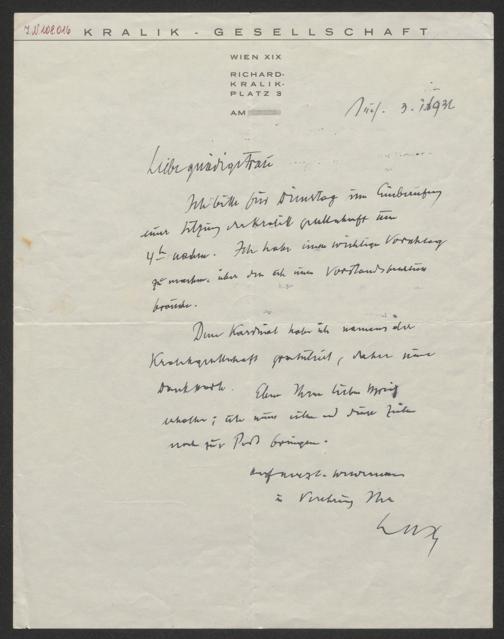 J.N 108.016
KRALIK - GESELLSCHAFT
WIEN XIX
RICHARD-
KRALIK-
PLATZ 3
AM
3. 1931
Liebe gnädigste Frau
Ich bitte für Dienstag um Einberufung
einer Sitzung der Kralikgesellschaft um
4h nachm. Ich habe einen wichtigen Vorschlag
zu machen, über den ich einen Vorstandsbeschluss
brauche.
Dem Kardinal habe ich namens der
Kralikgesellschaft gratuliert, daher seine
Dankworte. Eben Ihren lieben Brief
erhalten; ich muss und diese Zeilen
noch zur Post bringen.
in Verehrung Ihr